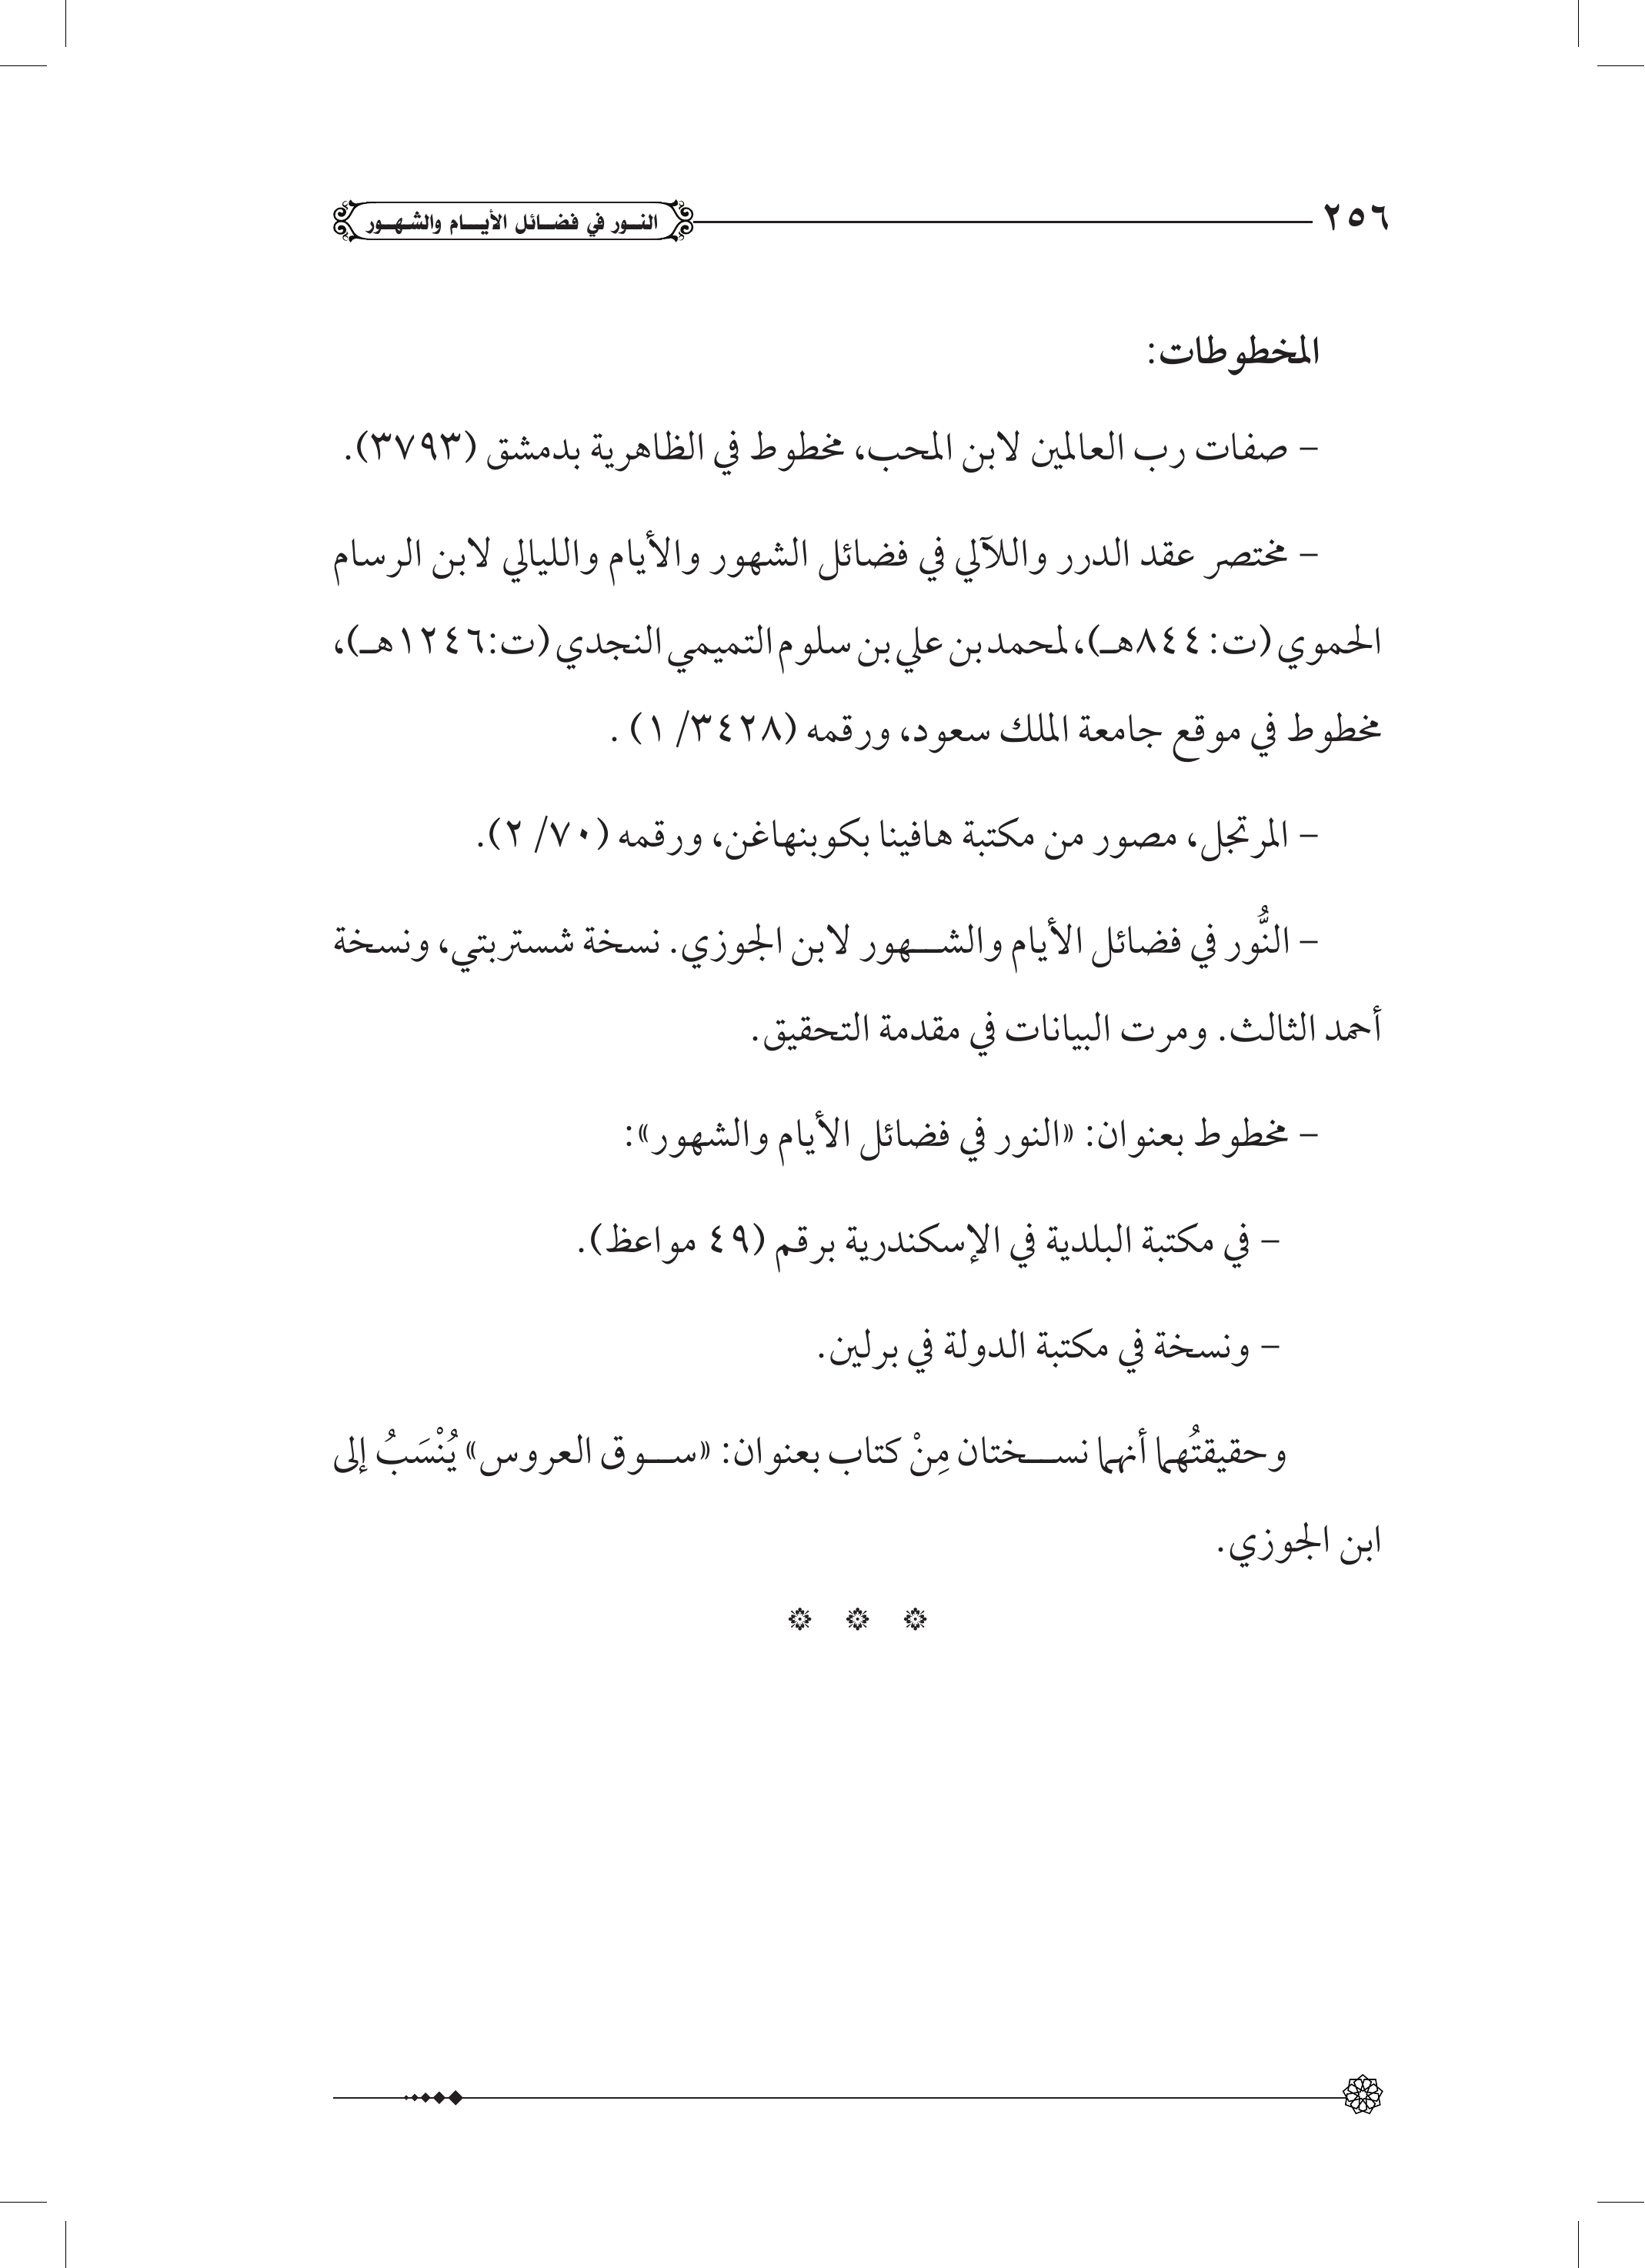 ٢٥٦
النور في فضائل الأيام والشهور
المخطوطات:
– صفات رب العالمين لابن المحب، مخطوط في الظاهرية بدمشق (٣٧٩٣).
– مختصر عقد الدرر واللآلي في فضائل الشهور والأيام والليالي لابن الرسام
الحموي (ت: ٨٤٤هـ)، لمحمد بن علي بن سلوم التميمي النجدي (ت:١٢٤٦هـ)،
مخطوط في موقع جامعة الملك سعود، ورقمه (٣٤٢٨/ ١) .
– المرتجل، مصور من مكتبة هافينا بكوبنهاغن، ورقمه (٧٠/ ٢).
– النُّور في فضائل الأيام والشهور لابن الجوزي. نسخة شستربتي، ونسخة
أحمد الثالث. ومرت البيانات في مقدمة التحقيق.
– مخطوط بعنوان: «النور في فضائل الأيام والشهور»:
– في مكتبة البلدية في الإسكندرية برقم (٤٩ مواعظ).
– ونسخة في مكتبة الدولة في برلين.
وحقيقتُهما أنهما نسختان مِنْ كتاب بعنوان: «سوق العروس» يُنْسَبُ إلى
ابن الجوزي.